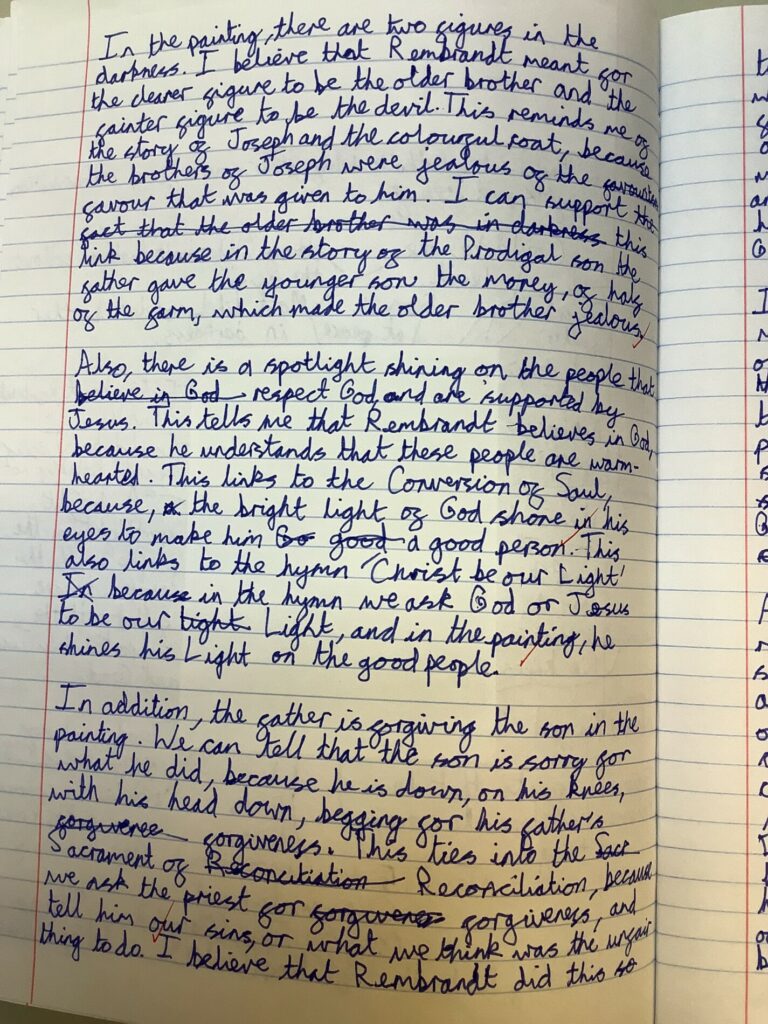 In the painting, there are two figures in the
darkness. I believe that Rembrandt meant for
the clearer figure to be the older brother and the
fainter figure to be the devil. This reminds me of
the story of Joseph and the colourful coat, because
the brothers of Joseph were jealous of the
favour that was given to him. I can support that
fact that the older brother was in darkness this
link because in the story of the Prodigal son the
father gave the younger son the money, of half
of the farm, which made the older brother jealous.
Also, there is a spotlight shining on the people that
believe in God respect God, and are supported by
Jesus. This tells me that Rembrandt believes in God,
because he understands that these people are warm-
hearted. This links to the Conversion of Saul,
because, the bright light of God shone in his
eyes to make him Go good a good person. This
also links to the hymn 'Christ be our Light'
because in the hymn we ask God or Jesus
to be our light Light, and in the painting, he
shines his Light on the good people.
In addition, the father is forgiving the son in the
painting. We can tell that the son is sorry for
what he did, because he is down, on his knees,
with his head down, begging for his father's
forgivenee forgiveness. This ties into the Sacr
Sacrament of Reconciliation Reconciliation, because
we ask the priest for forgivenes forgiveness, and
tell him our sins, or what we think was the unfair
thing to do. I believe that Rembrandt did this so